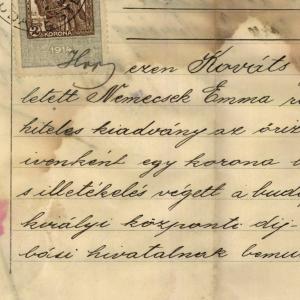 2 KORONA
1914
Hogy ezen Kováts
letett Nemecsek Emma
hiteles kiadvány az őriz
ivenként egy korona
s illetékelés végett a buda
királyi központi díj-
bási hivatalnak bemu